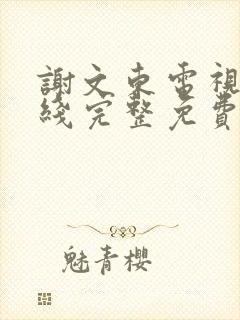 謝文東電視
綫完整免費
魅青櫻